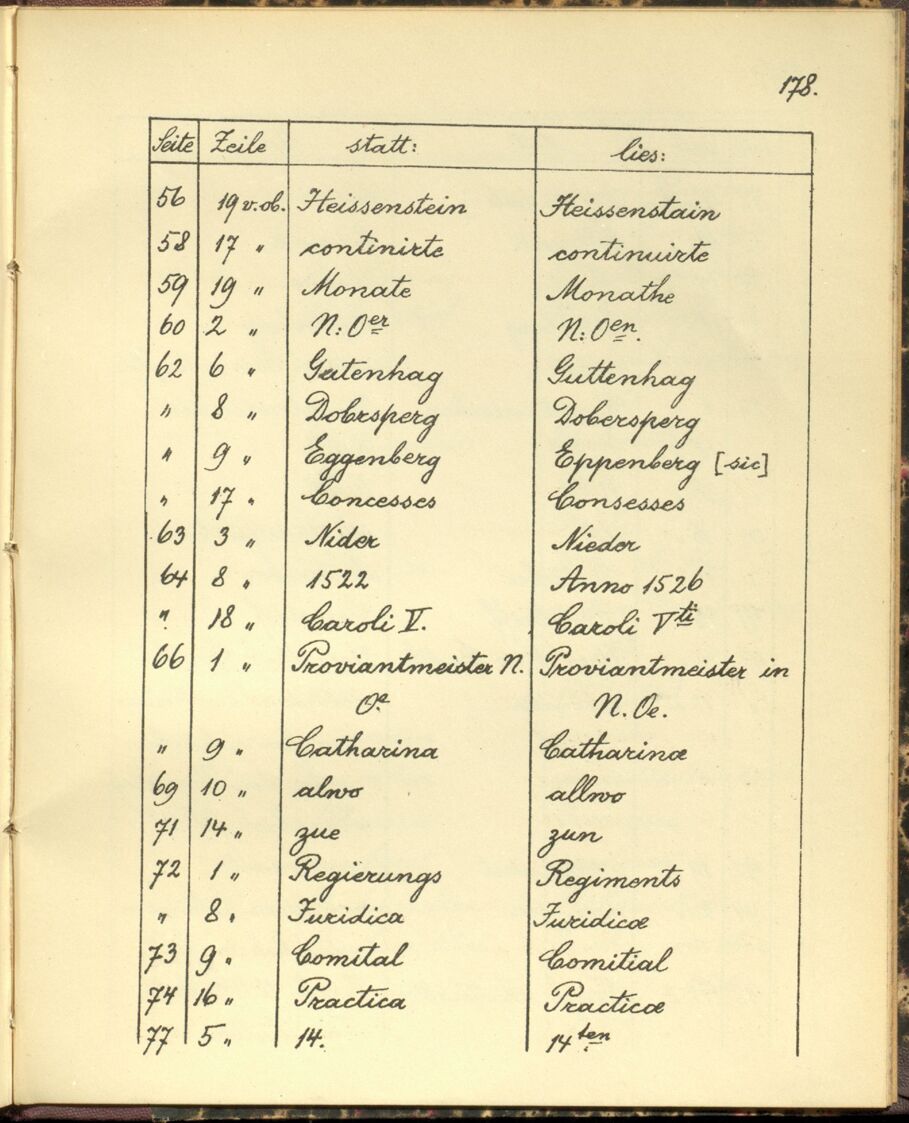 178.
Seite Zeile statt: lies:
56 19 v. ob. Heissenstein Heissenstain
58 17 " continirte continuirte
59 19 " Monate Monathe
60 2 " N: Oer N: Oen.
62 6 " Gutenhag Guttenhag
" 8 " Dobrsperg Dobersperg
" 9 " Eggenberg Eppenberg [sic]
" 17 " Concesses Consesses
63 3 " Nider Nieder
64 8 " 1522 Anno 1526
" 18 " Caroli V. Caroli Vti
66 1 " Proviantmeister N. Proviantmeister in
Oe. N. Oe.
" 9 " Catharina Catharinæ
69 10 " alwo allwo
71 14 " zue zun
72 1 " Regierungs Regiments
" 8 " Juridica Juridicæ
73 9 " Comital Comitial
74 16 " Practica Practicæ
77 5 " 14. 14ten